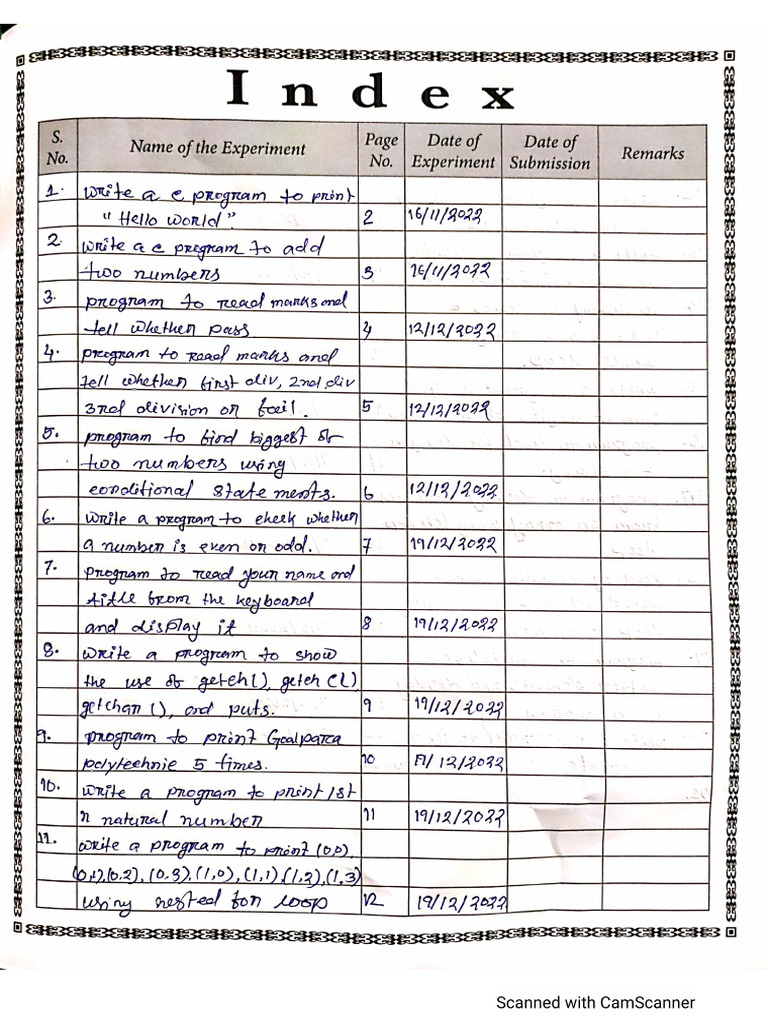 Index
S. No. Name of the Experiment Page No. Date of Experiment Date of Submission Remarks
1. Write a c program to print
"Hello world". 2 16/11/2022
2. Write a c program to add
two numbers 3 16/11/2022
3. program to read marks and
tell whether pass 4 12/12/2022
4. program to read marks and
tell whether first div, 2nd div
3rd division or fail. 5 12/12/2022
5. program to find biggest of
two numbers using
conditional statements. 6 12/12/2022
6. Write a program to check whether
a number is even or odd. 7 19/12/2022
7. program to read your name and
title from the keyboard
and display it 8 19/12/2022
8. Write a program to show
the use of getch(), getche(),
getchar(), and puts. 9 19/12/2022
9. program to print Goalpara
polytechnic 5 times. 10 /12/2022
10. Write a program to print 1st
n natural number 11 19/12/2022
11. Write a program to print (0,0),
(0,1),(0,2),(0,3),(1,0),(1,1),(1,2),(1,3)
using nested for loop 12 19/12/2022
Scanned with CamScanner